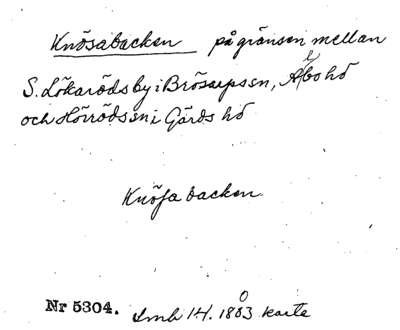 Knösabacken på gränsen mellan
S. Lökaröds by i Brösarps sn, Albo hd
och Hörröds sn i Gärds hd
Knösa backen
Nr 5304. Lmh 14. 1803 karta